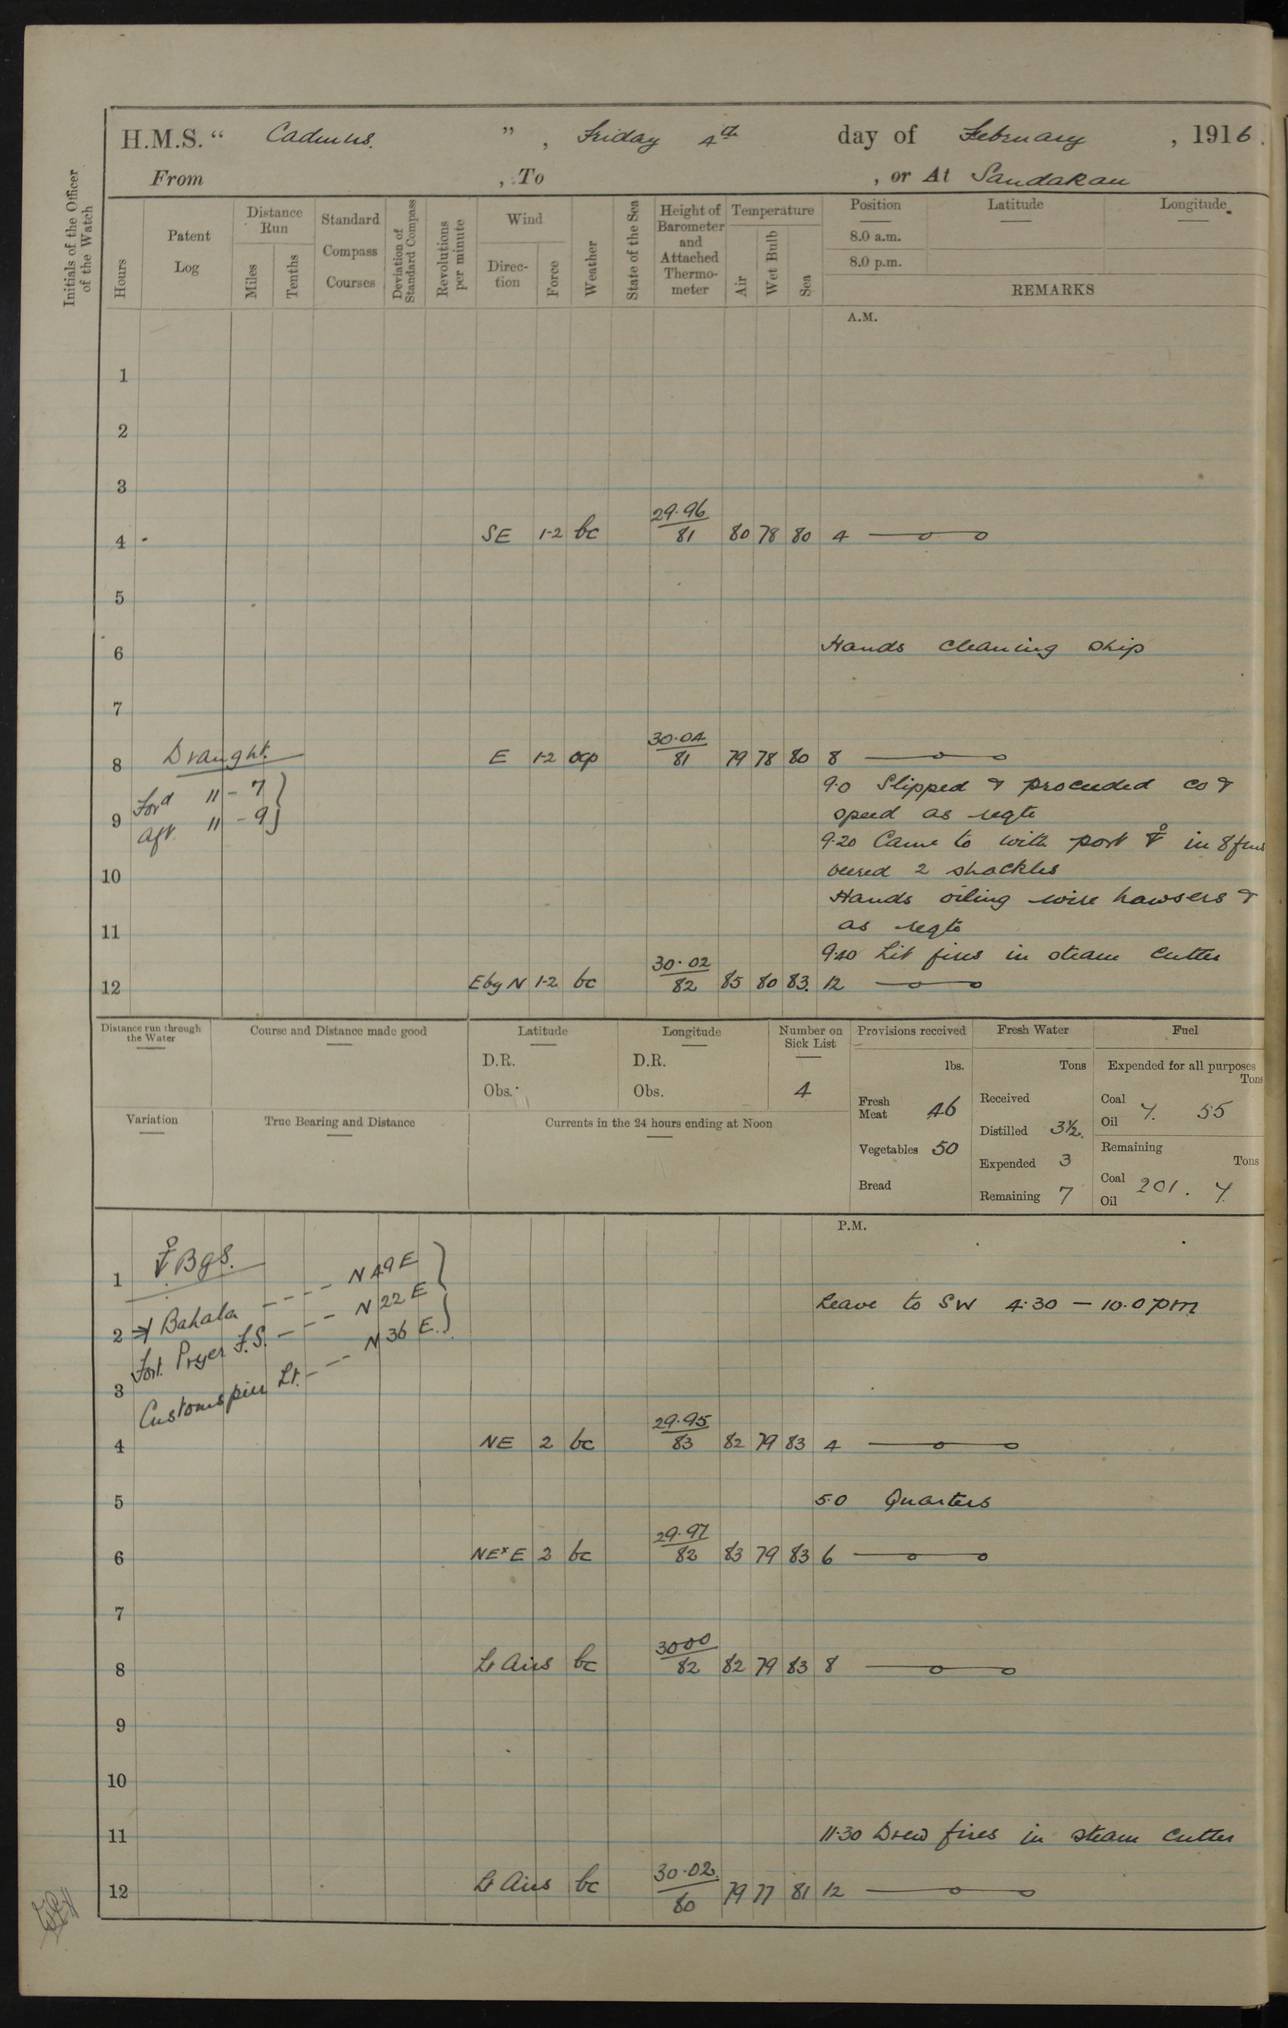 H.M.S. " Cadmus. " , Friday 4th day of February , 1916.
From , To , or At Sandakan
Initials of the Officer of the Watch
Hours
Patent Log
Distance Run
Miles
Tenths
Standard Compass Courses
Deviation of Standard Compass
Revolutions per minute
Wind
Direction
Force
Weather
State of the Sea
Height of Barometer and Attached Thermometer
Temperature
Air
Wet Bulb
Sea
Position
8.0 a.m.
8.0 p.m.
Latitude
Longitude
REMARKS
A.M.
1
2
3
4 SE 1-2 bc 29.96/81 80 78 80 4
5
6 Hands cleaning ship
7
8 Draught. E 1-2 ocp 30.04/81 79 78 80 8
Ford 11 - 7
9.0 Slipped & proceeded co &
9 speed as reqte
Aft 11 - 9
9.20 Came to with port ⚓ in 8 fms
10 veered 2 shackles
Hands oiling wire hawsers &
11 as reqte
9.40 Lit fires in steam cutter
12 E by N 1-2 bc 30.02/82 85 80 83. 12
Distance run through the Water
Course and Distance made good
Latitude
D.R.
Obs.
Longitude
D.R.
Obs.
Number on Sick List
4
Provisions received
lbs.
Fresh Meat 46
Vegetables 50
Bread
Fresh Water
Tons
Received
Distilled 3½.
Expended 3
Remaining 7
Fuel
Expended for all purposes
Tons
Coal 7. 55
Oil
Remaining
Tons
Coal 201. 7.
Oil
Variation
True Bearing and Distance
Currents in the 24 hours ending at Noon
P.M.
⚓ Bgs.
1
Bahala --- N 49 E
Leave to SW 4.30 - 10.0 pm
2
Fort Pryer F.S. --- N 22 E
3
Customs pier Lt. --- N 36 E.
4 NE 2 bc 29.95/83 82 79 83 4
5 5.0 Quarters
6 NE x E 2 bc 29.97/82 83 79 83 6
7
8 Lt Airs bc 30 00/82 82 79 83 8
9
10
11 11.30 Drew fires in steam cutter
12 Lt Airs bc 30.02/80 79 77 81 12